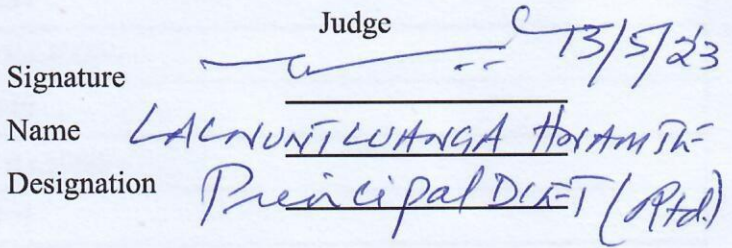 Judge
Signature 13/5/23
Name LALNUNTLUANGA HNAMTE
Designation Principal DIET (Rtd.)